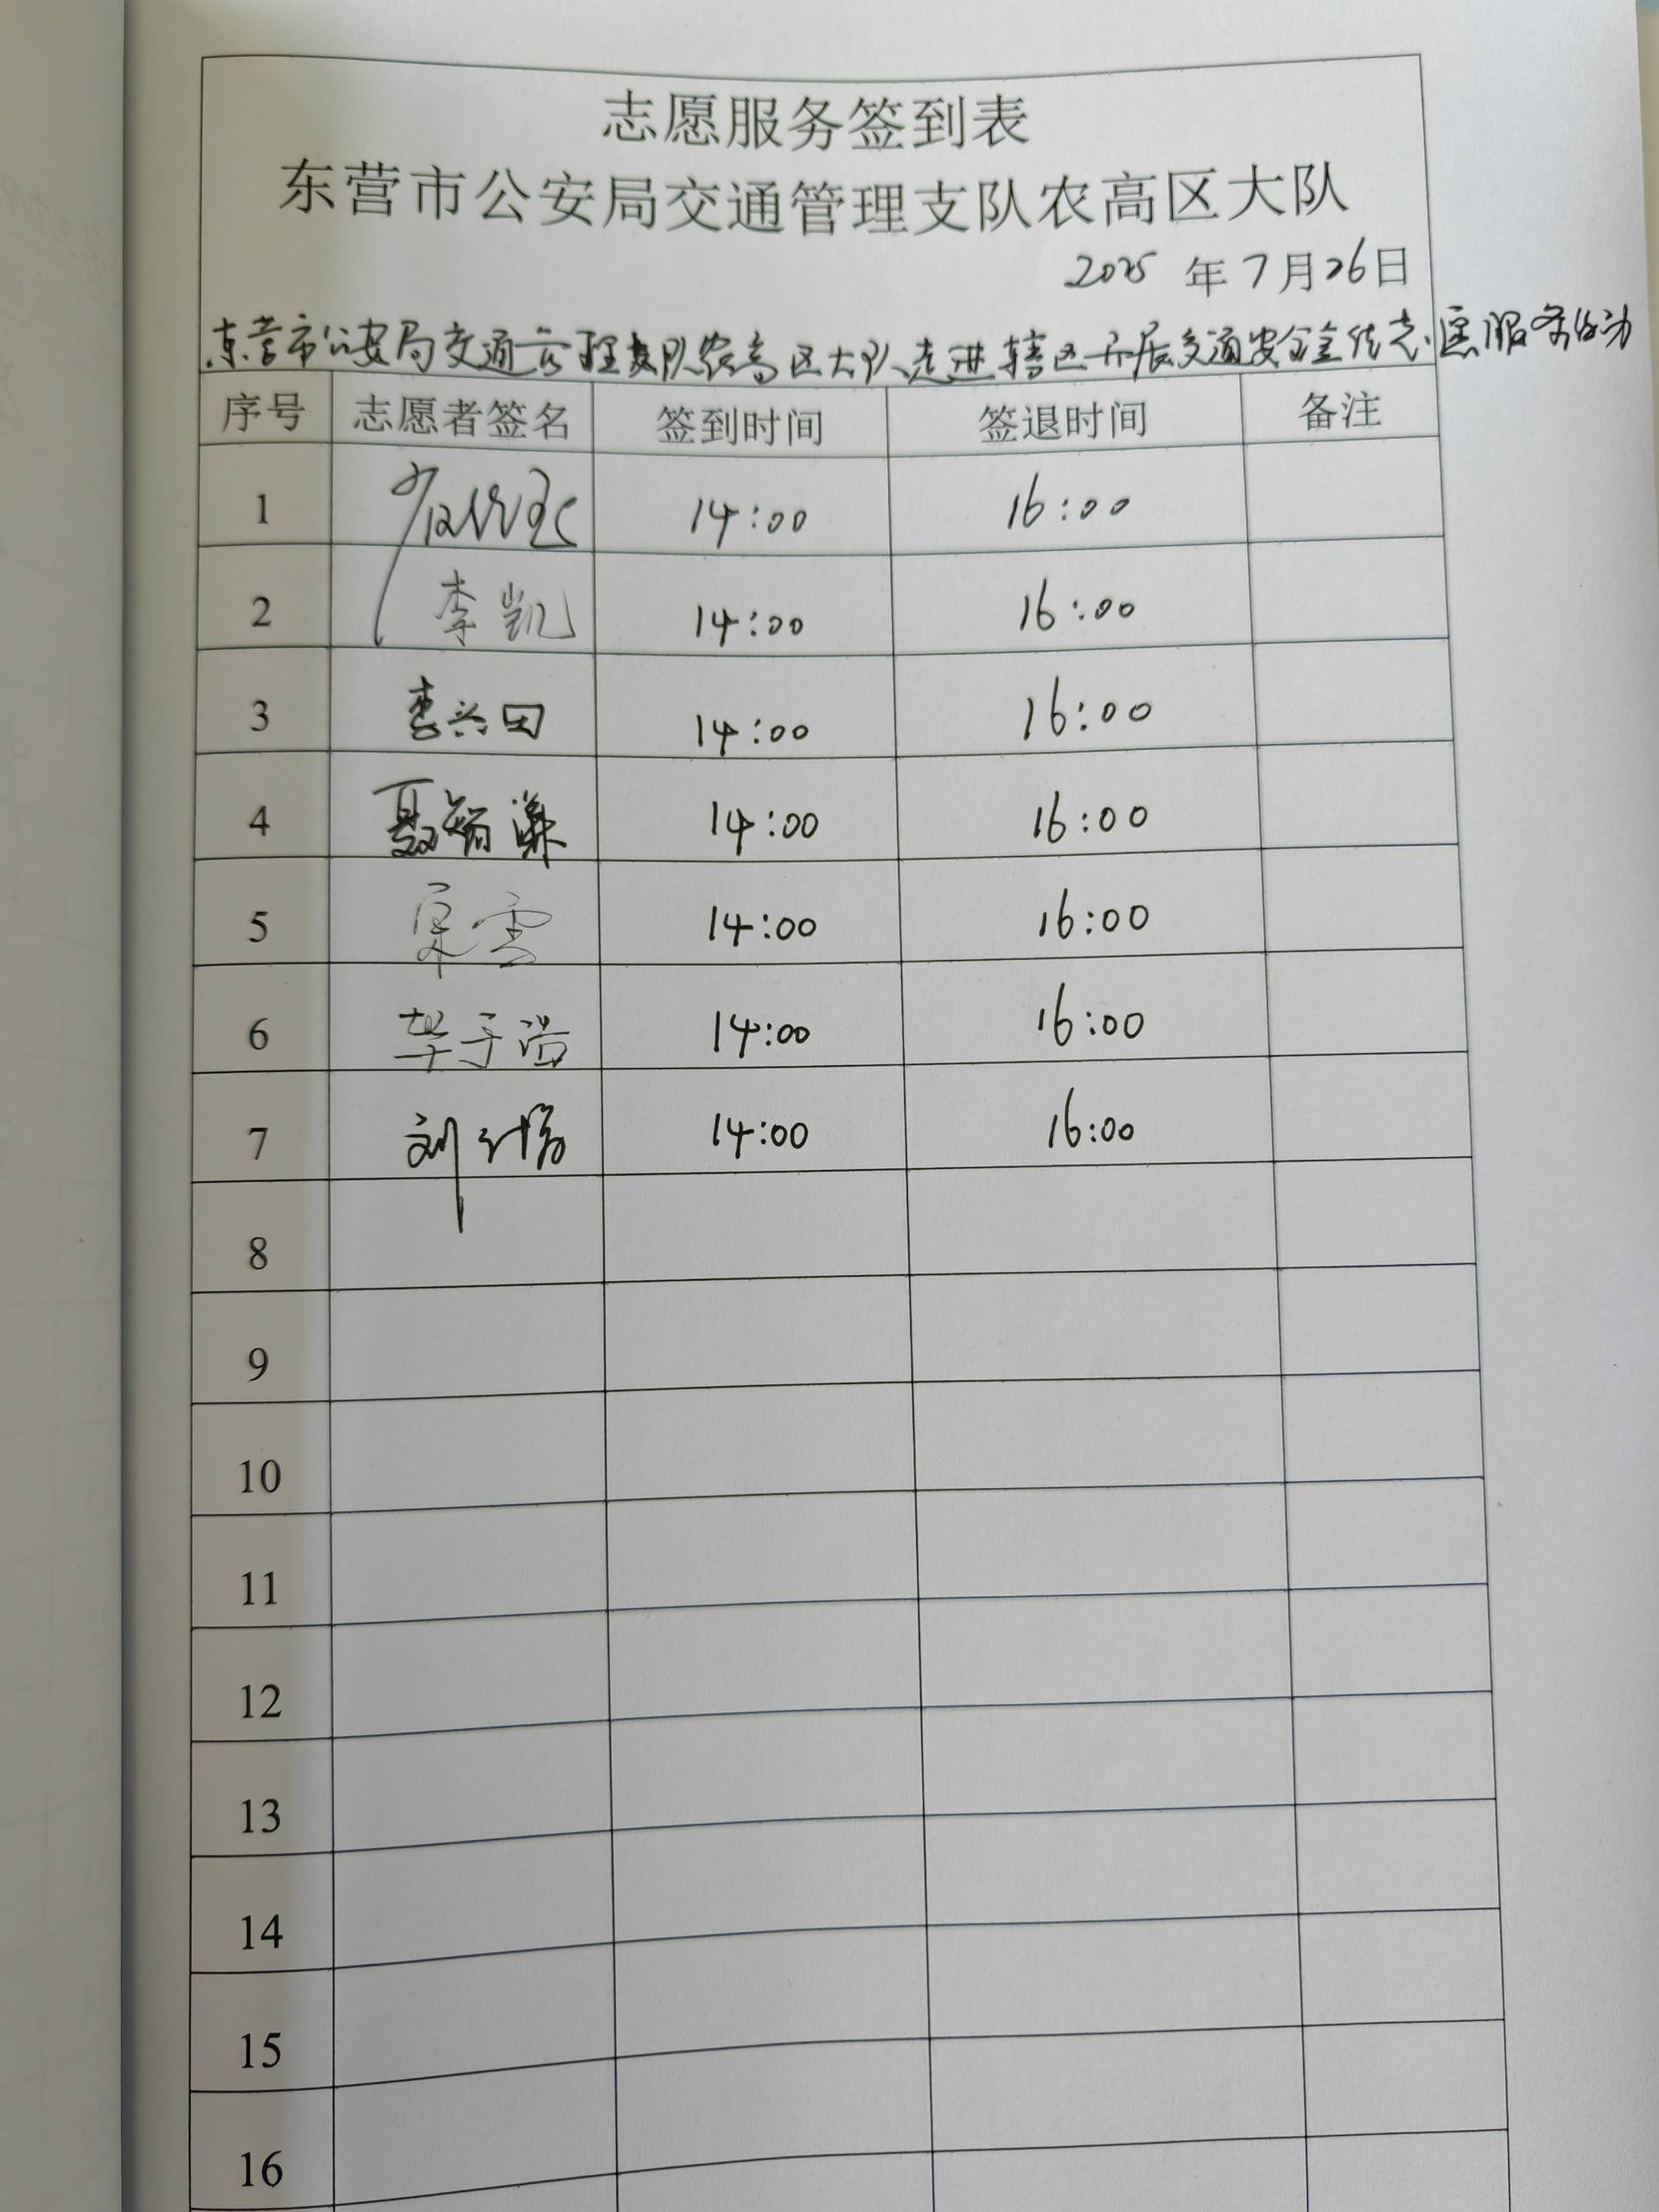 志愿服务签到表
东营市公安局交通管理支队农高区大队
2025 年 7 月 26 日
东营市公安局交通管理支队农高区大队走进辖区开展交通安全宣传志愿服务活动
序号 志愿者签名 签到时间 签退时间 备注
1 14:00 16:00
2 李凯 14:00 16:00
3 李兴田 14:00 16:00
4 14:00 16:00
5 14:00 16:00
6 毕于浩 14:00 16:00
7 刘 14:00 16:00
8
9
10
11
12
13
14
15
16